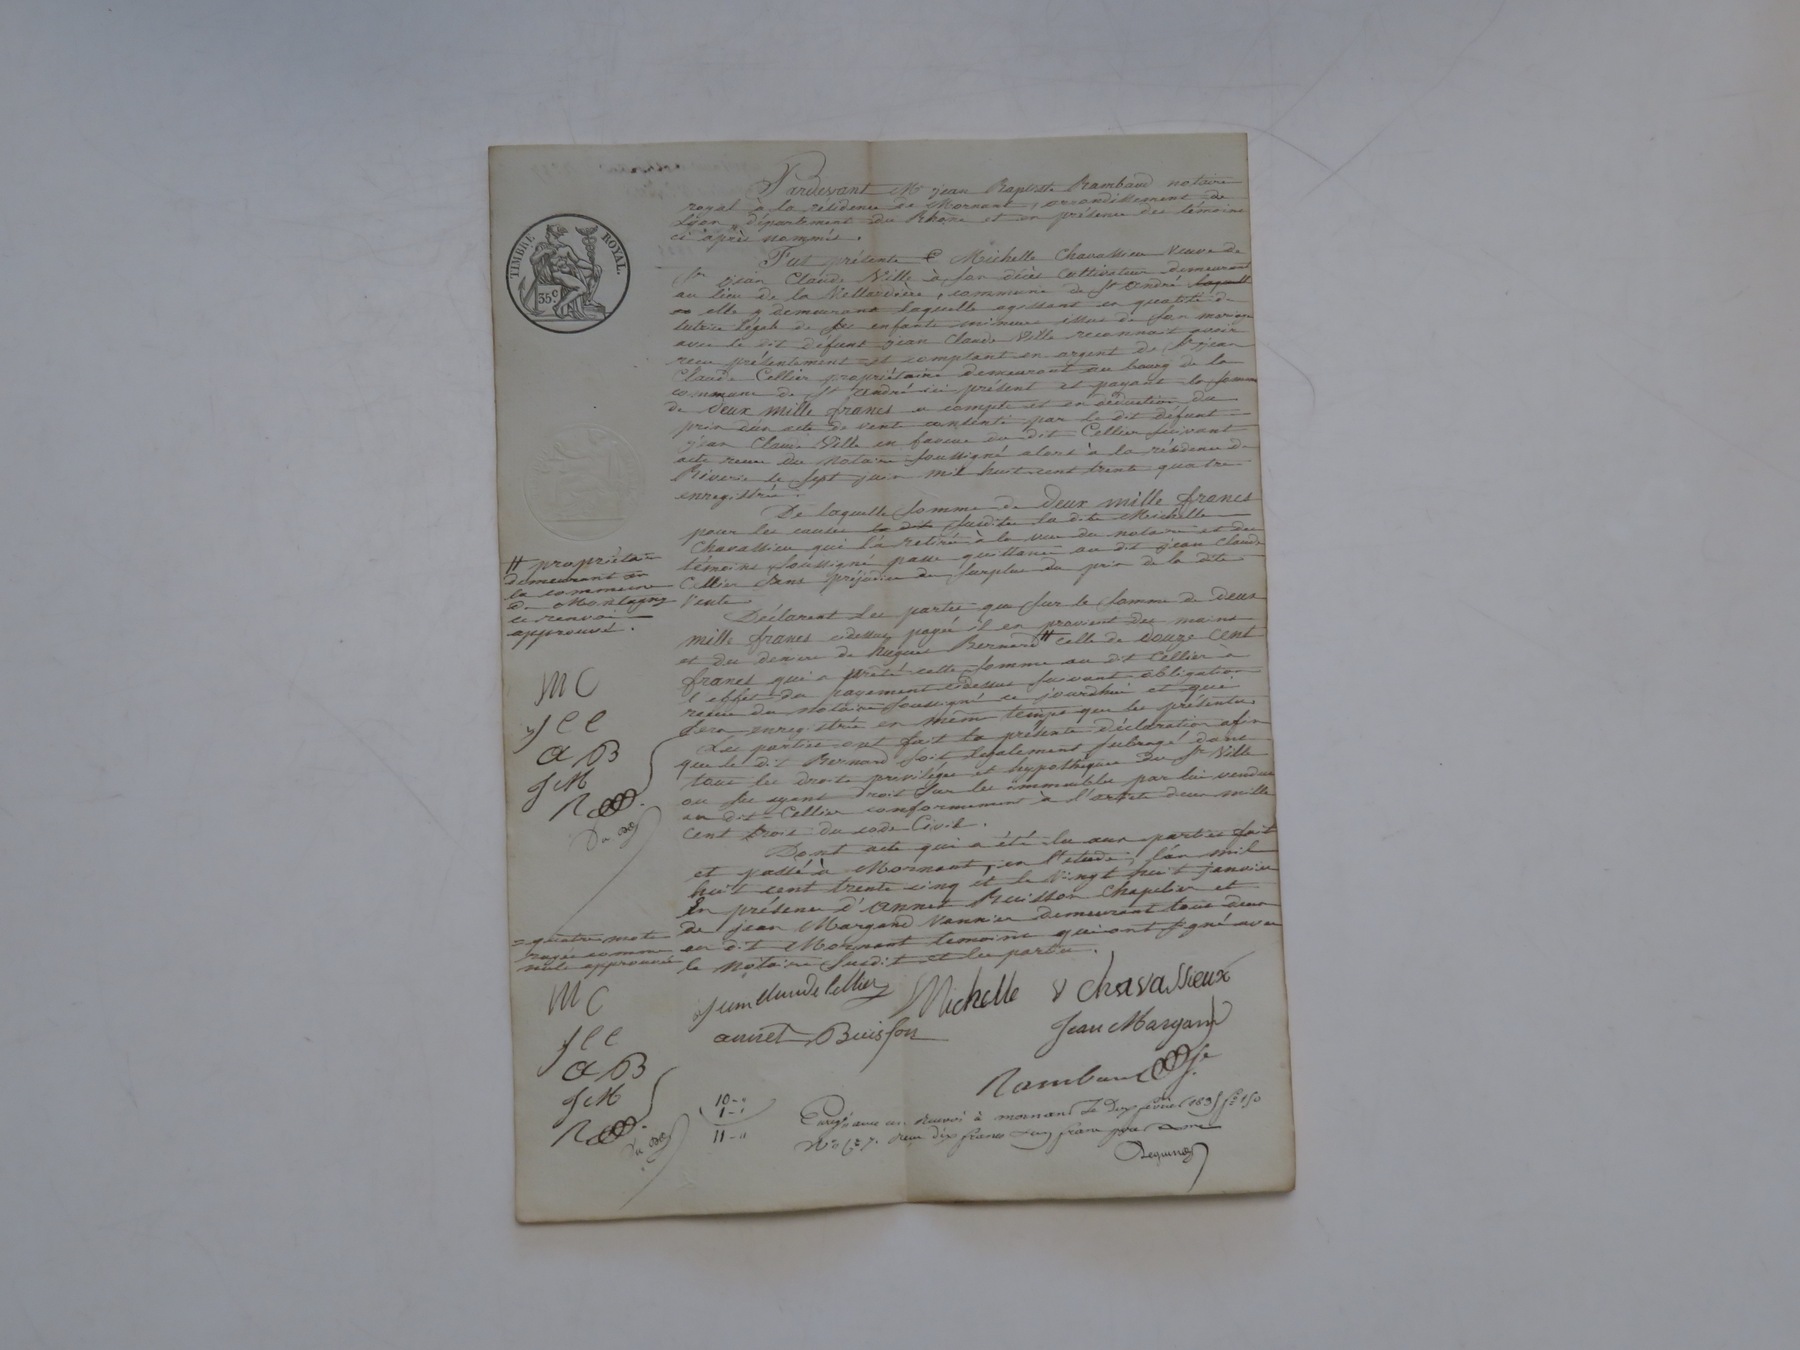 Pardevant Me jean Baptiste Rambaud notaire
royal à la résidence de Mornant, arrondissement de
Lyon, département du Rhône et en présence des témoins
ci après nommés.
TIMBRE ROYAL.
35c
Fut présente Michelle Chavassieu veuve de
Sr jean Claude Ville à son décès cultivateur demeurant
au lieu de la Villardière, commune de St André laquelle
elle y demeurant laquelle agissant en qualité de
tutrice légale de ses enfants mineurs issus de son mariage
avec le dit défunt jean Claude Ville reconnait avoir
reçu présentement et comptant en argent de Sr jean
Claude Cellier propriétaire demeurant au bourg de la
commune de St André ici présent et payant la somme
de deux mille francs a compte et en déduction du
prix d'un acte de vente consenti par le dit défunt
jean Claude Ville en faveur du dit Cellier suivant
acte recu du notaire soussigné alors à la résidence de
Riverie le sept juin mil huit cent trente quatre
enregistré.
De laquelle somme de deux mille francs
pour les causes la dite susdites la dite Michelle
Chavassieu qui l'a retirée à la vue du notaire et des
témoins soussigné passe quittance au dit jean Claude
Cellier sans préjudice du surplus du prix de la dite
vente
# propriétaire
demeurant en
la commune
de Montagny
ce renvoi
approuvé.
Déclarent les parties que sur la somme de deux
mille francs cidessus payée il en provient des mains
et du deniers de Hugues Bernard # celle de douze cent
francs qui a prêté cette somme au dit Cellier à
l'effet du payement cidessus suivant obligation
recue du notaire soussigné ce jourdhui et qui
sera enregistrée en meme temps que les présentes
Les parties ont fait la présente déclaration afin
que le dit Bernard soit légalement subrogé dans
tous les droits priviléges et hypothèques du Sr Ville
ou ses ayant droit sur les immeubles par lui vendus
au dit Cellier conformement à l'article deux mille
cent trois du code Civil.
MC
JCC
AB
JM
R
Dont acte qui a été lu aux parties fait
et passé à Mornant, en l'etude, l'an mil
huit cent trente cinq et le vingt huit janvier
En présence d'Annet Buisson chapelier et
de jean Margand vannier demeurant tous deux
au dit Mornant temoins qui ont signé avec
le notaire susdit et les parties.
= quatre mots
rayés comme
nuls approuvés
MC
JCC
AB
JM
R
jean Claude Cellier Michelle v chavassieux
annet Buisson Jean Margand
Rambaud
10-"
1-"
11-"
Enregistré un Renvoi à mornant le Dix fevrier 1835 fo 150
Vo Ce 7. reçu dix francs & un franc pour